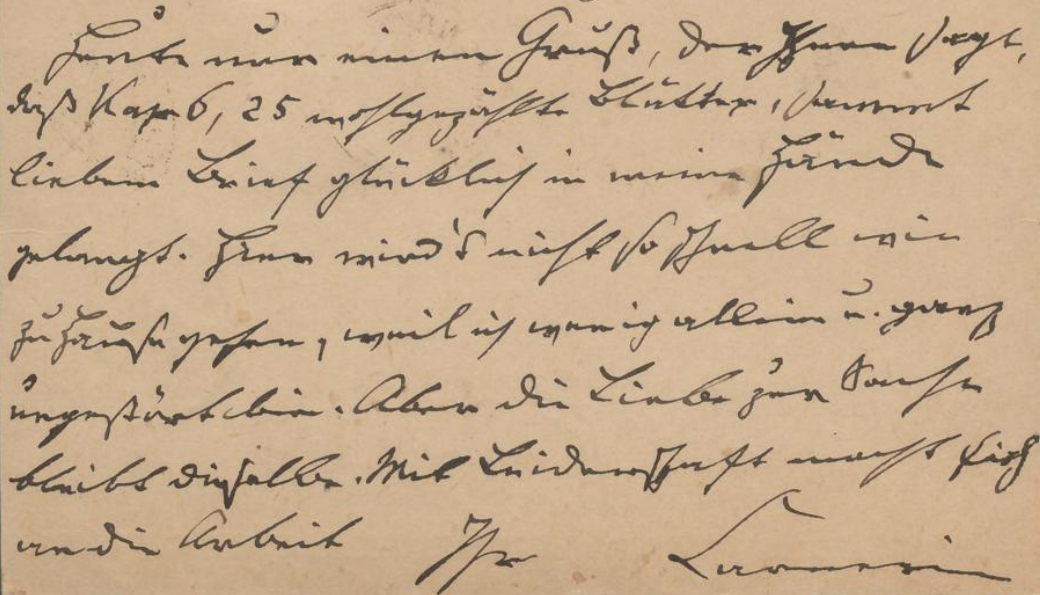 Heute nur einen Gruß, der Ihnen sagt,
daß Kap 6, 25 wohlgezählte Blätter, sammt
liebem Brief glücklich in meine Hände
gelangt. Hier wird's nicht so schnell wie
zu Hause gehen, weil ich wenig allein u. ganz
ungestört bin. Aber die Liebe zur Sache
bleibt dieselbe. Mit Leidenschaft macht sich
an die Arbeit Ihr